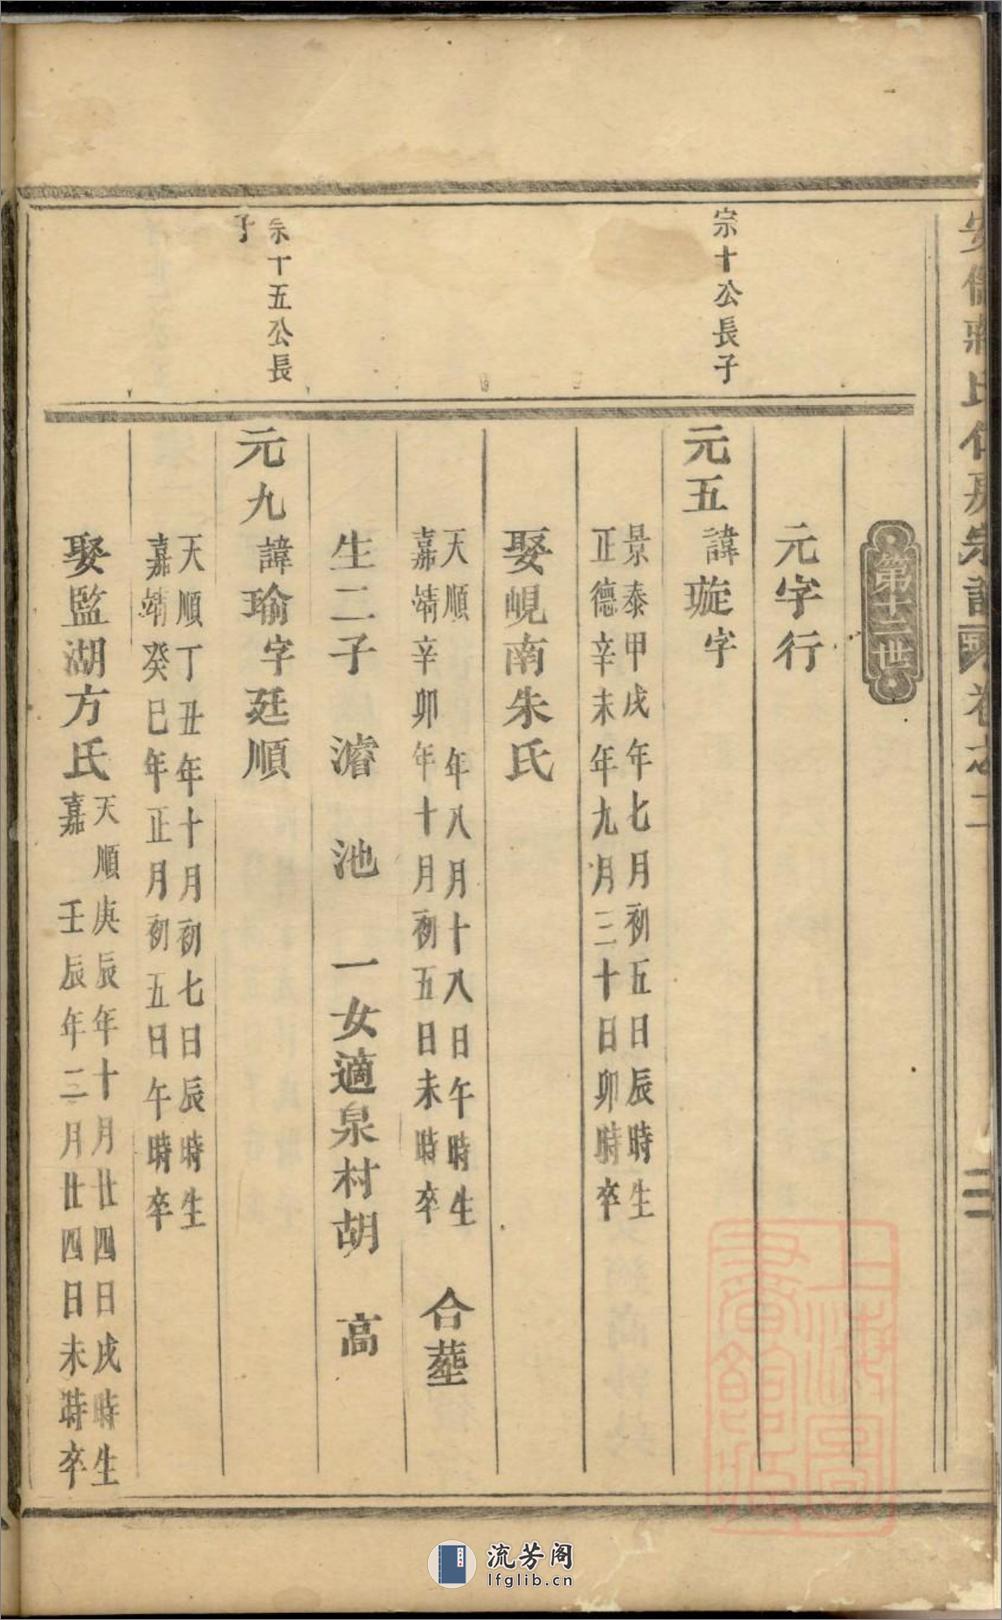 第十二世
元字行
宗十公長子
元五諱璇字
景泰甲戌年七月初五日辰時生
正德辛未年九月三十日卯時卒
娶峴南朱氏
天順 年八月十八日午時生
嘉靖辛卯年十月初五日未時卒
合塟
生二子 濬 池 一女適泉村胡 高
宗十五公長子
元九諱瑜字廷順
天順丁丑年十月初七日辰時生
嘉靖癸巳年正月初五日午時卒
娶監湖方氏
天順庚辰年十月廿四日戌時生
嘉 壬辰年二月廿四日未時卒
上海圖書館藏
流芳阁
lfglib.cn